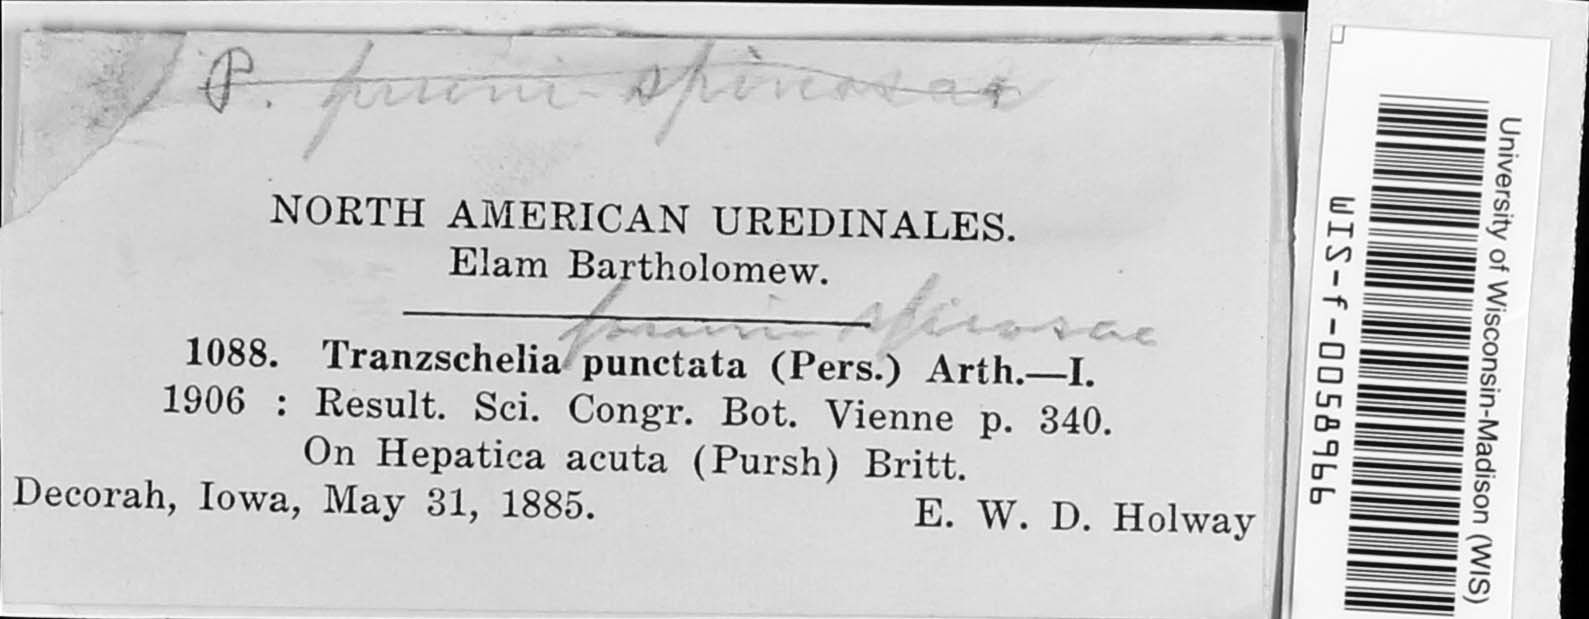 P. pruni-spinosae
NORTH AMERICAN UREDINALES.
Elam Bartholomew.
pruni-spinosae
1088. Tranzschelia punctata (Pers.) Arth.—I.
1906 : Result. Sci. Congr. Bot. Vienne p. 340.
On Hepatica acuta (Pursh) Britt.
Decorah, Iowa, May 31, 1885. E. W. D. Holway
University of Wisconsin-Madison (WIS)
WIS-f-0058966